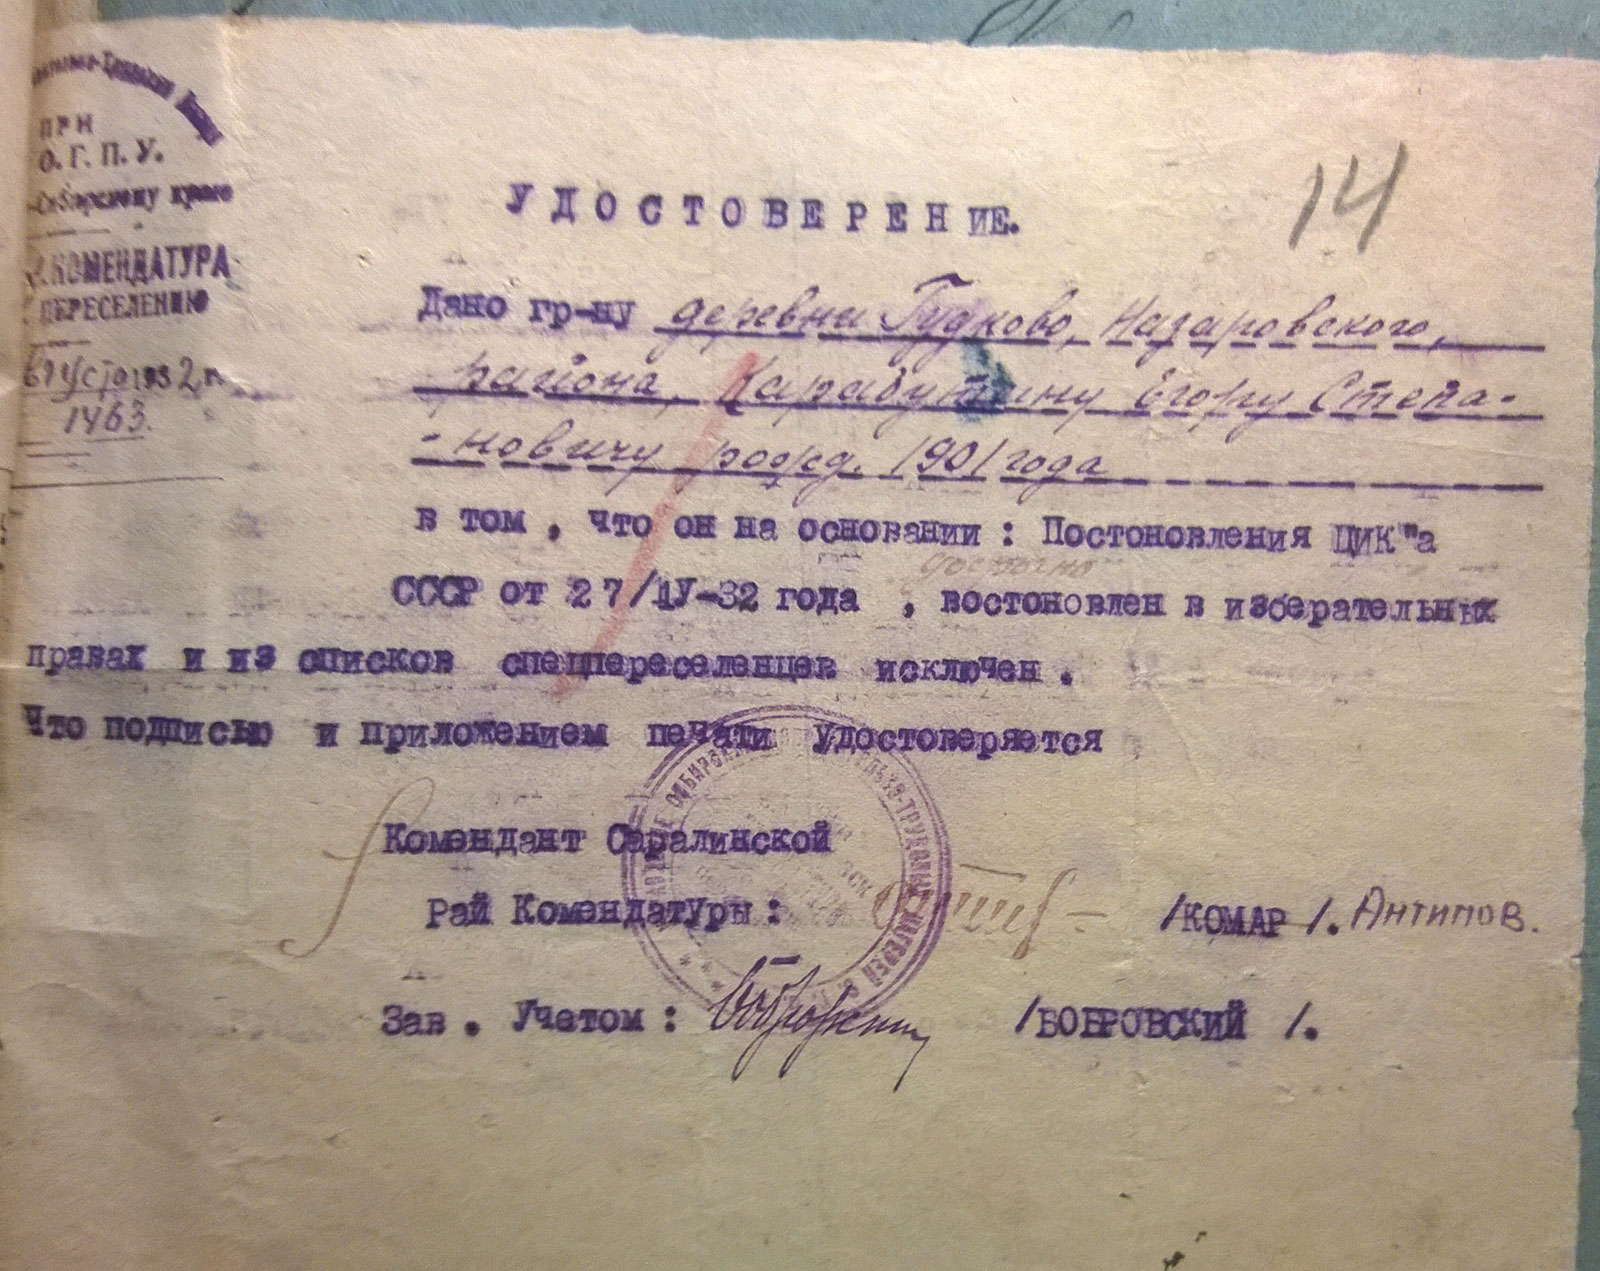 14
при
О.Г.П.У.
-Сибирскому краю
КОМЕНДАТУРА
ПЕРЕСЕЛЕНИЮ
августа 1932 г.
1463.
УДОСТОВЕРЕНИЕ.
Дано гр-ну деревни Гудково, Назаровского,
района, Карабутину Егору Степа-
-новичу рожд. 1901 года
в том , что он на основании : Постоновления ЦИК"а
досрочно
СССР от 27/1У-32 года , востоновлен в изберательных
правах и из списков спецпереселенцев исключен .
Что подписью и приложением печати удостоверяется
Комендант Саралинской
Рай Комендатуры : /КОМАР /. Антипов.
Зав . Учетом : /БОБРОВСКИЙ /.